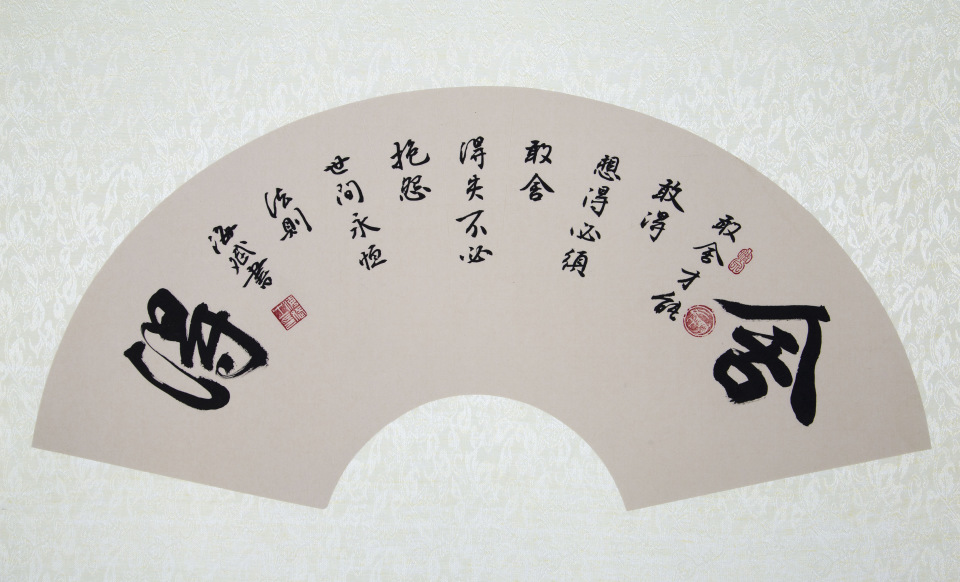 舍
敢舍才能
敢得
想得必须
敢舍
得失不必
抱怨
世间永恒
法则
海斌书
得